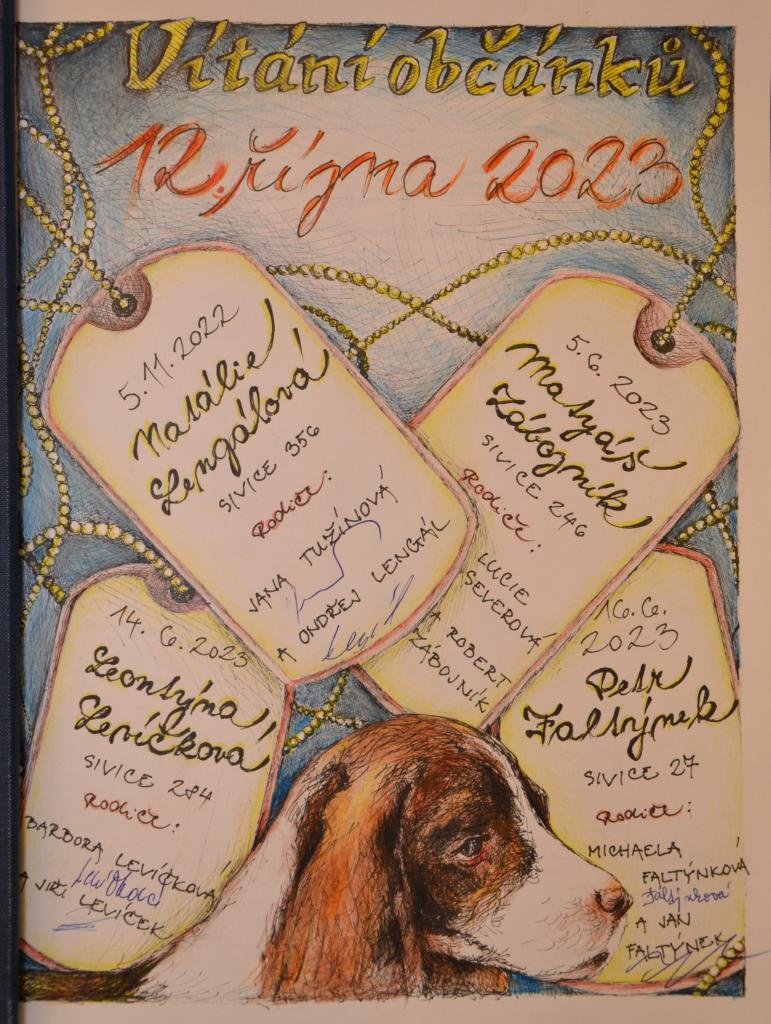 Vítání občánků
12. října 2023
5.11.2022
Natálie
Lengálová
SIVICE 356
Rodiče:
JANA TUŽÍNOVÁ
A ONDŘEJ LENGÁL
5.6.2023
Matyáš
Zábojník
SIVICE 246
Rodiče:
LUCIE
SEVEROVÁ
A ROBERT
ZÁBOJNÍK
14. 6. 2023
Leontýna
Levíčková
SIVICE 284
Rodiče:
BARBORA LEVÍČKOVÁ
Levíčková
A JIŘÍ LEVÍČEK
16.6.
2023
Petr
Faltýnek
SIVICE 27
Rodiče:
MICHAELA
FALTÝNKOVÁ
Faltýnková
A JAN
FALTÝNEK